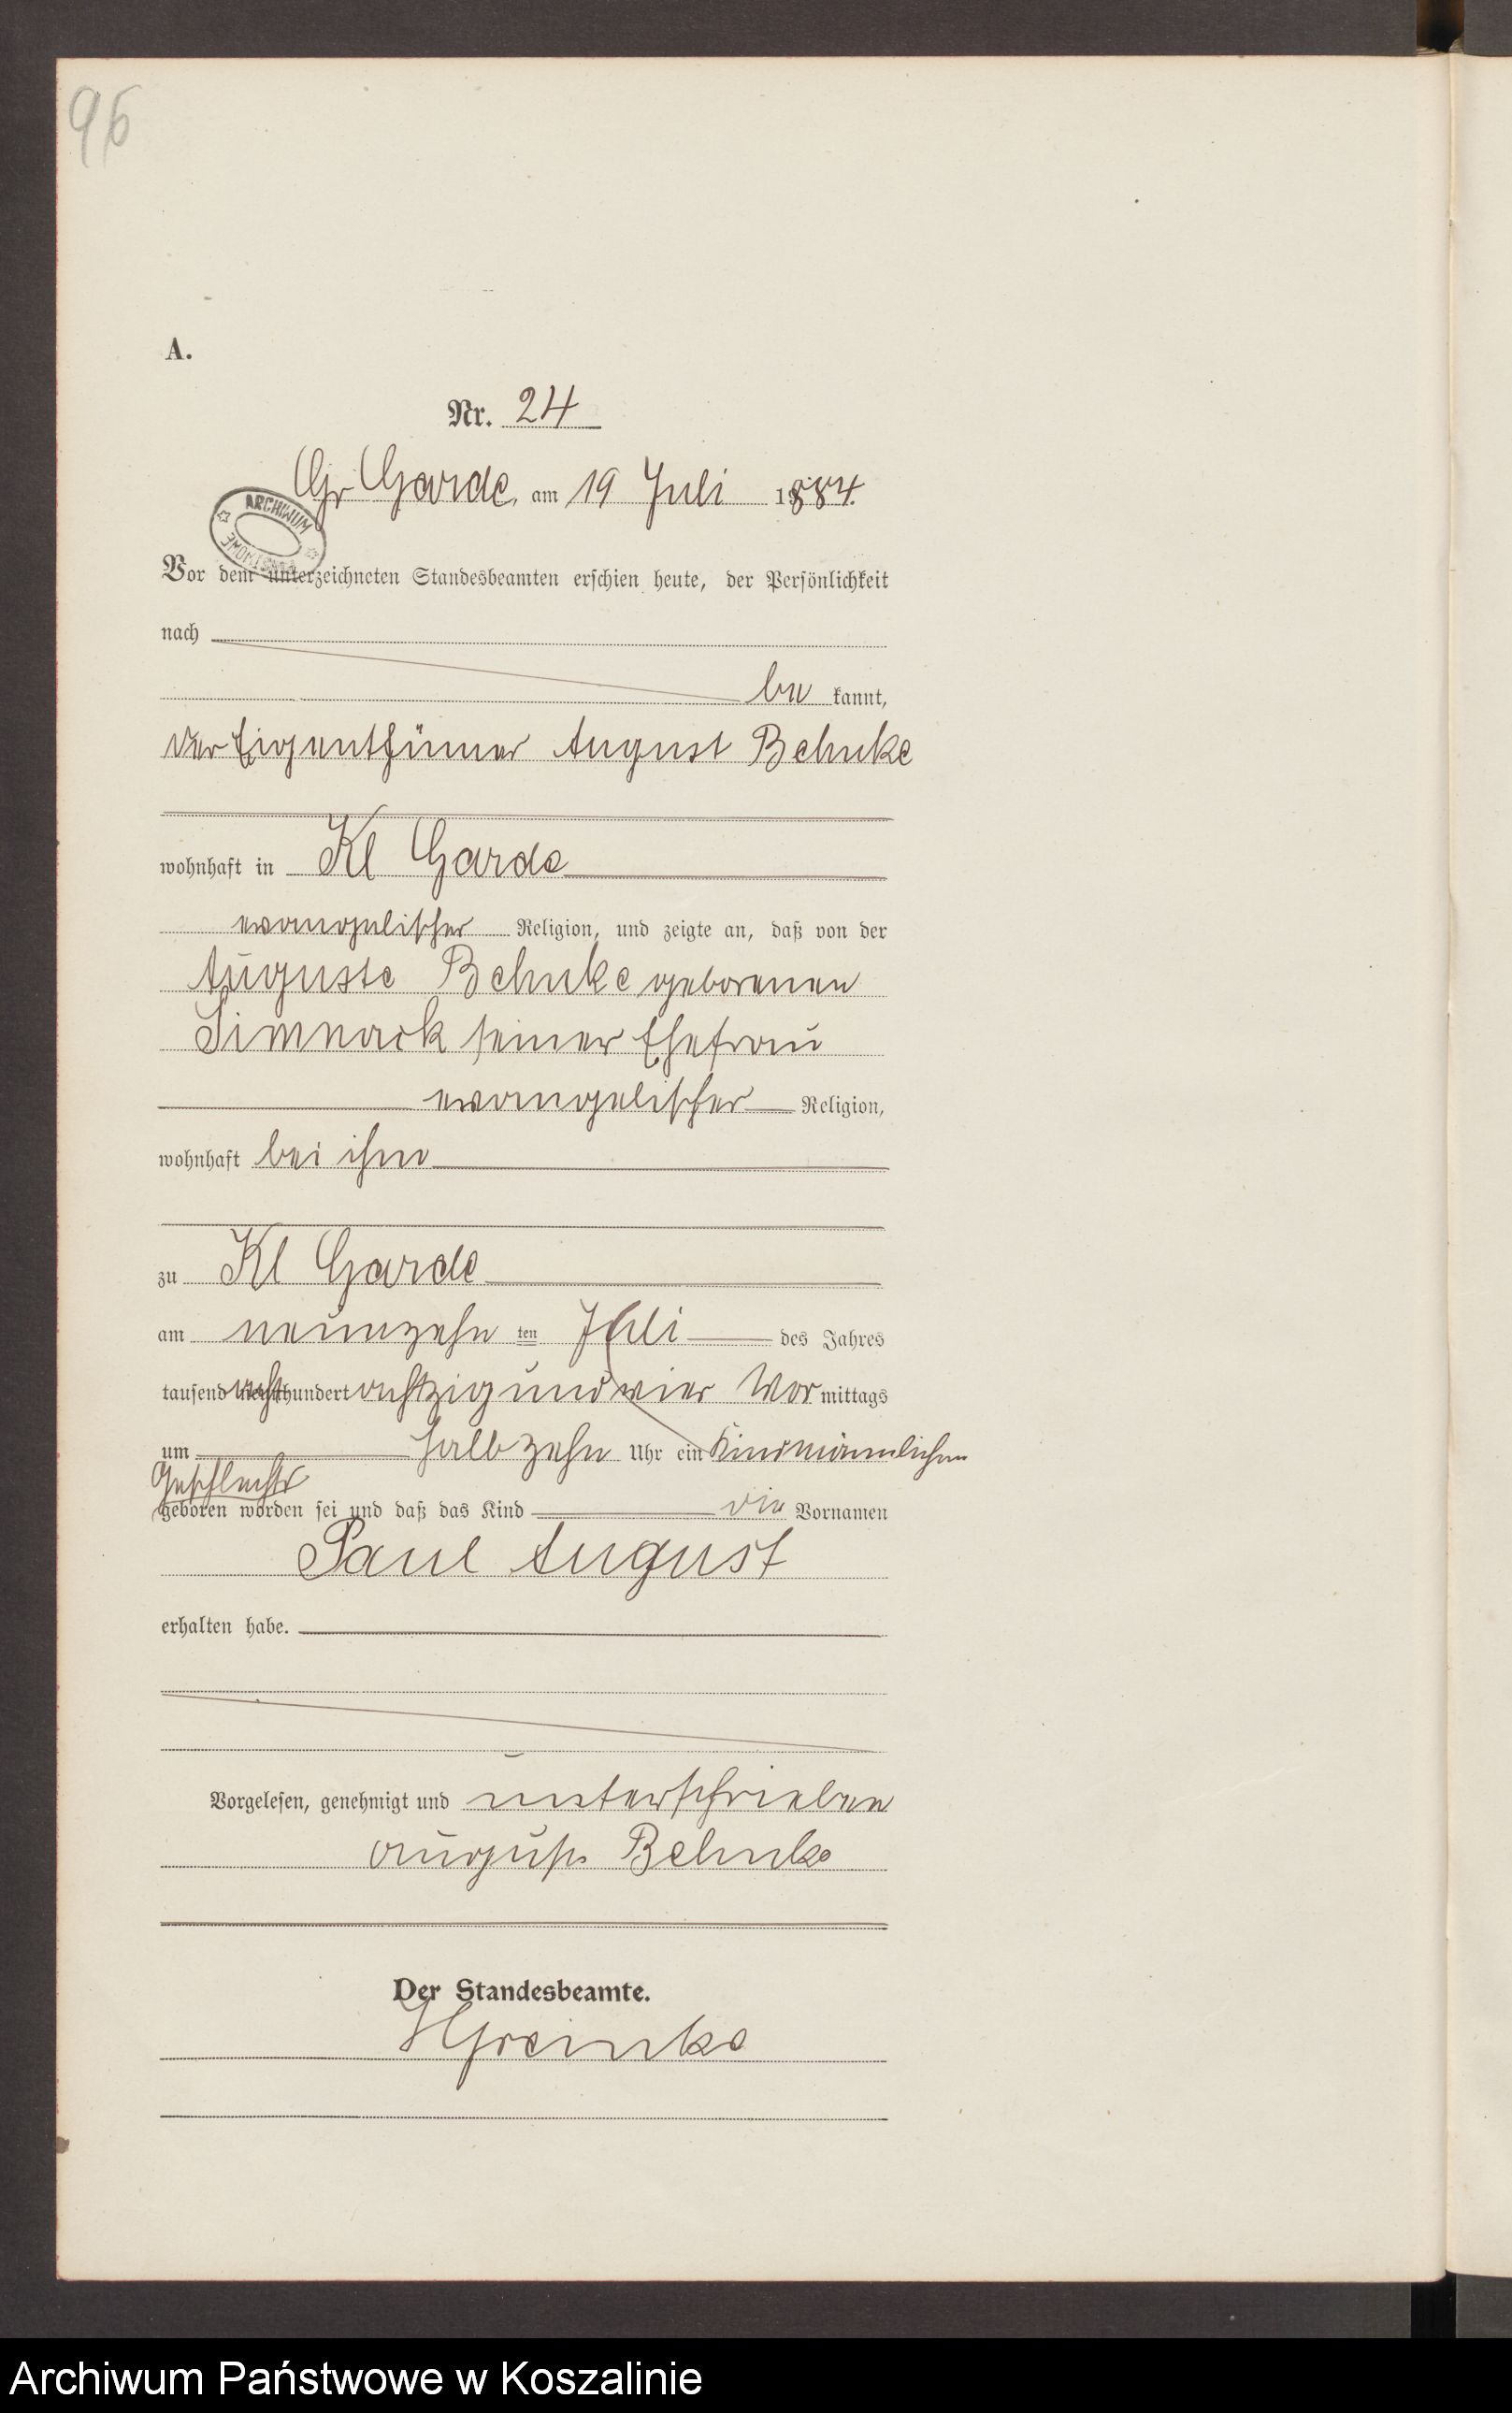 96
A.
Nr. 24
Gr Garde, am 19 Juli 1884.
ARCHIWUM
Vor dem unterzeichneten Standesbeamten erschien heute, der Persönlichkeit
nach
be kannt,
der Eigenthümer August Behnke
wohnhaft in Kl Garde
evangelischer Religion, und zeigte an, daß von der
Auguste Behnke geborenen
Simnack seiner Ehefrau
evangelischer Religion,
wohnhaft bei ihm
zu Kl Garde
am neunzehn ten Juli des Jahres
tausend acht hundert achtzig und vier Vor mittags
um halb zehn Uhr ein Kind männlichen
Geschlechts
geboren worden sei und daß das Kind die Vornamen
Paul August
erhalten habe.
Vorgelesen, genehmigt und unterschrieben
August Behnke
Der Standesbeamte.
Archiwum Państwowe w Koszalinie